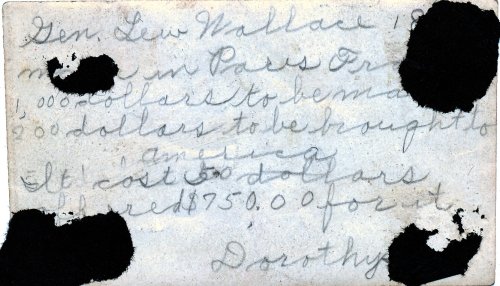 Gen. Lew Wallace 18
in Paris Fr
1,000 dollars to be ma
200 dollars to be brought to
America
It cost 50 dollars
offered $750.00 for it
Dorothy